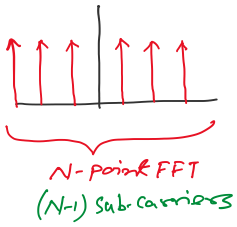 N-point FFT
(N-1) sub-carriers